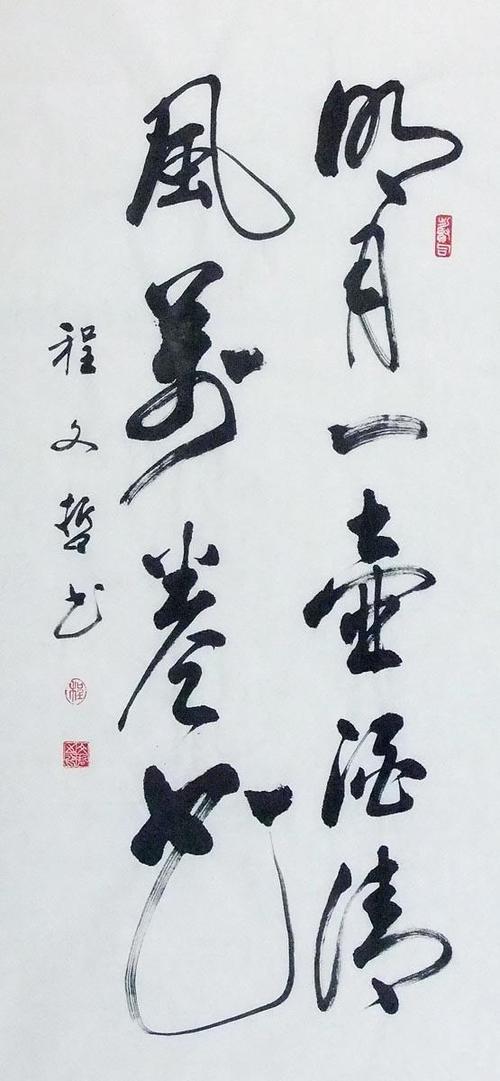 明月一壶酒清
風萬卷书
程文哲书